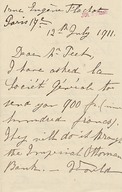 1 rue Eugène Flachat
Paris 17e
12th July 1911.
Dear Mr Peet,
I have asked la
Société Générale to
send you 900 frs (nine
hundred francs).
They will do it through
the Imperial Ottoman
Bank